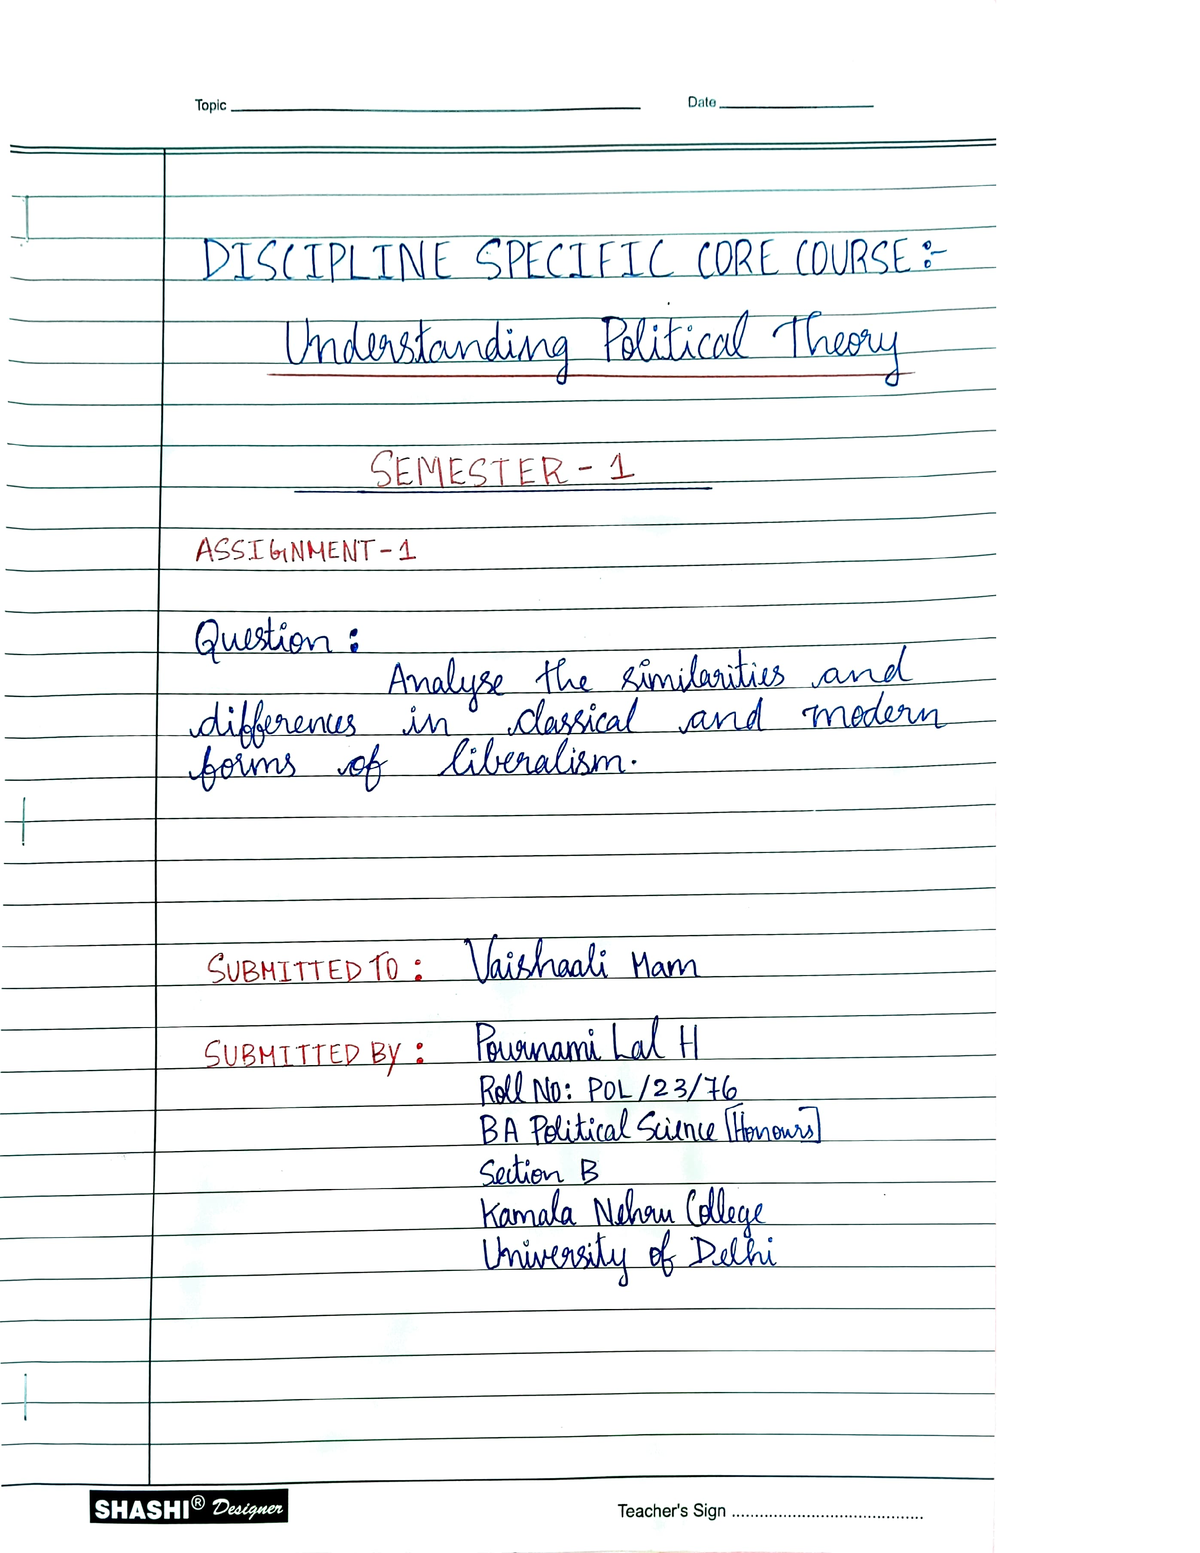 Topic
Date
DISCIPLINE SPECIFIC CORE COURSE:-
Understanding Political Theory
SEMESTER - 1
ASSIGNMENT - 1
Question:
Analyse the similarities and
differences in classical and modern
forms of liberalism.
SUBMITTED TO: Vaishaali Mam
SUBMITTED BY: Pournami Lal H
Roll No: POL/23/76
BA Political Science [Honours]
Section B
Kamala Nehru College
University of Delhi
SHASHI® Designer
Teacher's Sign ........................................